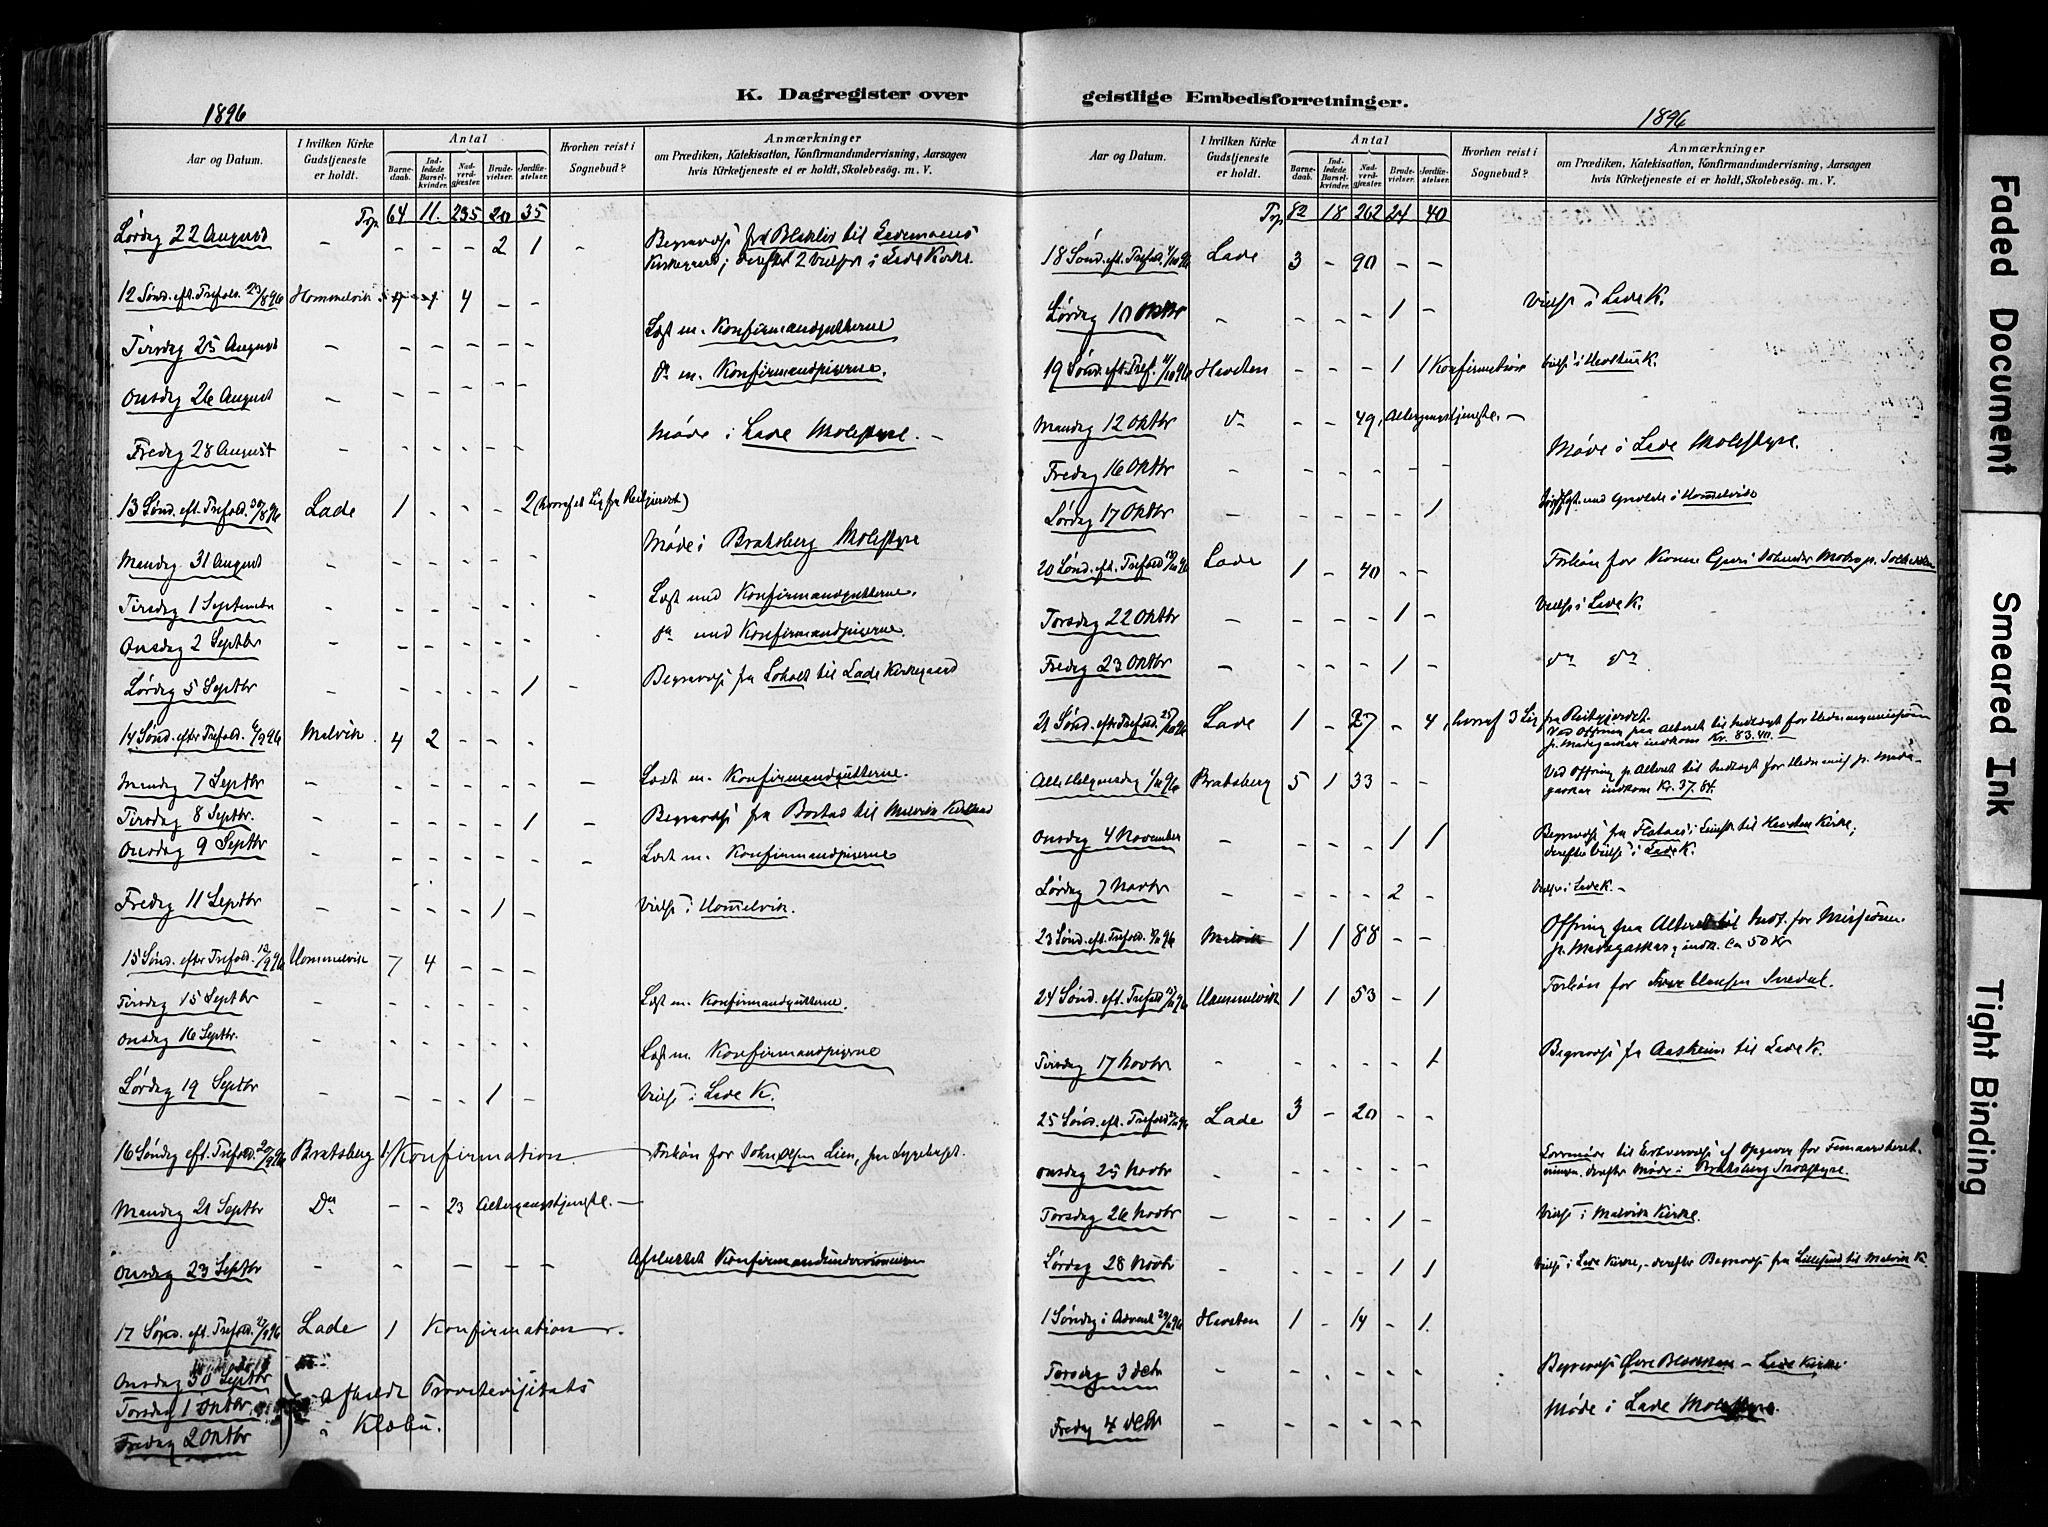 K. Dagregister over
1896
Aar og Datum.
I hvilken Kirke Gudstjeneste er holdt.
Antal
Barnedaab.
Indledede Barselkvinder.
Nadverdgjæster.
Brudevielser.
Jordfæstelser.
Hvorhen reist i Sognebud?
Anmærkninger
om Prædiken, Katekisation, Konfirmandundervisning, Aarsagen
hvis Kirketjeneste ei er holdt, Skolebesøg. m. V.
Trp 64 11. 235 20 35
Lørdag 22 August - - - - 2 1 - Begravelse fra til
Kirkegaard; derefter 2 Vielser i Lade Kirke.
12 Sønd. eft. Trefold. 23/8 96 Hommelvik 4 - -
Tirsdag 25 August - - - - - - Læst m. Konfirmandgutterne
Onsdag 26 August - - - - - - Do m. Konfirmandpigerne.
Fredag 28 August - - - - - - Møde i Lade Skolestyre. -
13 Sønd. eft. Trefold. 30/8 96 Lade 1 - - - 2
Mandag 31 August - - - - - - Møde i Bratsberg Skolestyre
Tirsdag 1 September - - - - - - - Læst med Konfirmandgutterne.
Onsdag 2 Septbr - - - - - - - Do med Konfirmandpigerne.
Lørdag 5 Septbr - - - - - 1 - Begravelse fra til Lade Kirkegaard
14 Sønd. efter Trefold. 6/9 96 Malvik 4 2 - - -
Mandag 7 Septbr - - - - - - - Læst m. Konfirmandgutterne.
Tirsdag 8 Septbr. - - - - - 1 - Begravelse fra til Malvik
Onsdag 9 Septbr - - - - - - - Læst m. Konfirmandpigerne
Fredag 11 Septbr - - - - 1 - Vielse i Hommelvik.
15 Sønd. efter Trefold. 13/9 96 Hommelvik 7 4 - - -
Tirsdag 15 Septbr - - - - - - Læst m. Konfirmandgutterne.
Onsdag 16 Septbr. - - - - - - Læst m. Konfirmandpigerne
Lørdag 19 Septbr - - - - 1 - Vielse i Lade K.
16 Søndag eft. Trefold. 20/9 96 Bratsberg Konfirmation. - Forbøn for
Mandag 21 Septbr Do - - 23 Altergangstjeneste. -
Onsdag 23 Septbr - - - - - - Afsluttet Konfirmandundervisningen
17 Sønd. eft. Trefold. 27/9 96 Lade 1 Konfirmation.
Onsdag 30 Septbr
Torsdag 1 Oktbr Afholdt Provstevisitats
Fredag 2 Oktbr i Klæbu.
geistlige Embedsforretninger.
1896
Aar og Datum.
I hvilken Kirke Gudstjeneste er holdt.
Antal
Barnedaab.
Indledede Barselkvinder.
Nadverdgjæster.
Brudevielser.
Jordfæstelser.
Hvorhen reist i Sognebud?
Anmærkninger
om Prædiken, Katekisation, Konfirmandundervisning, Aarsagen
hvis Kirketjeneste ei er holdt, Skolebesøg. m. V.
Trp 82 18 262 24 40
18 Sønd. eft. Trefold. 4/10 96 Lade 3 - 90 - -
Lørdag 10 Oktbr - - - - 1 - Vielse i Lade K.
19 Sønd. eft. Tref. 11/10 96 Havsten - - - 1 1 Konfirmation Vielse i Havsten K.
Mandag 12 Oktbr Do - - 49. Altergangstjeneste. -
Fredag 16 Oktbr - - - - - - Møde i Lade Skolestyre.
Lørdag 17 Oktbr - - - - - 1 i Hommelvik
20 Sønd. eft. Trefold 18/10 96 Lade 1 - 40 - - Forbøn for
Torsdag 22 Oktbr - - - - 1 - Vielse i Lade K.
Fredag 23 Oktbr - - - - 1 - Do Do
21 Sønd. efter Trefold. 25/10 96 Lade 1 - 27 - 4, hvoraf 3 Lig fra
Ved Offring paa Alteret til Indtægt for
p. Madagaskar indkom Kr. 83.40.
Allehelgensdag 1/11 96 Bratsberg 5 1 33 - - Ved Offring p. Alteret til Indtægt for p. Mada-
gaskar indkom Kr. 37.84.
Onsdag 4 November - - - - 1 1 Begravelse fra til Havsten Kirke;
derefter Vielse i Lade K.
Lørdag 7 Novbr - - - - 2 - Vielse i Lade K. -
23 Sønd. eft. Trefold. 8/11 96 Malvik 1 1 88 - - Offring paa Alteret til Indt. for Missionen
p. Madagaskar; indk. ca 50 Kr
24 Sønd. eft. Trefold 15/11 96 Hommelvik 1 1 53 - 1 Forbøn for
Tirsdag 17 Novbr - - - - - 1 Begravelse fra til Lade K.
25 Sønd. eft. Trefold 22/11 96 Lade 3 - 20 - -
Onsdag 25 Novbr - - - - - til
derefter Møde i Bratsberg Skolestyre.
Torsdag 26 Novbr - - - - 1 - Vielse i Malvik Kirke.
Lørdag 28 Novbr - - - - 1 1 Vielse i Lade Kirke, - derefter Begravelse fra til Malvik K.
1 Søndag i Advent 29/11 96 Havsten 1 - 14 - 1.
Torsdag 3 Debr - - - - - - Begravelse Øvre - Lade Kirke
Fredag 4 Debr - - - - - - Møde i Lade Skolestyre.
Faded Document
Smeared Ink
Tight Binding